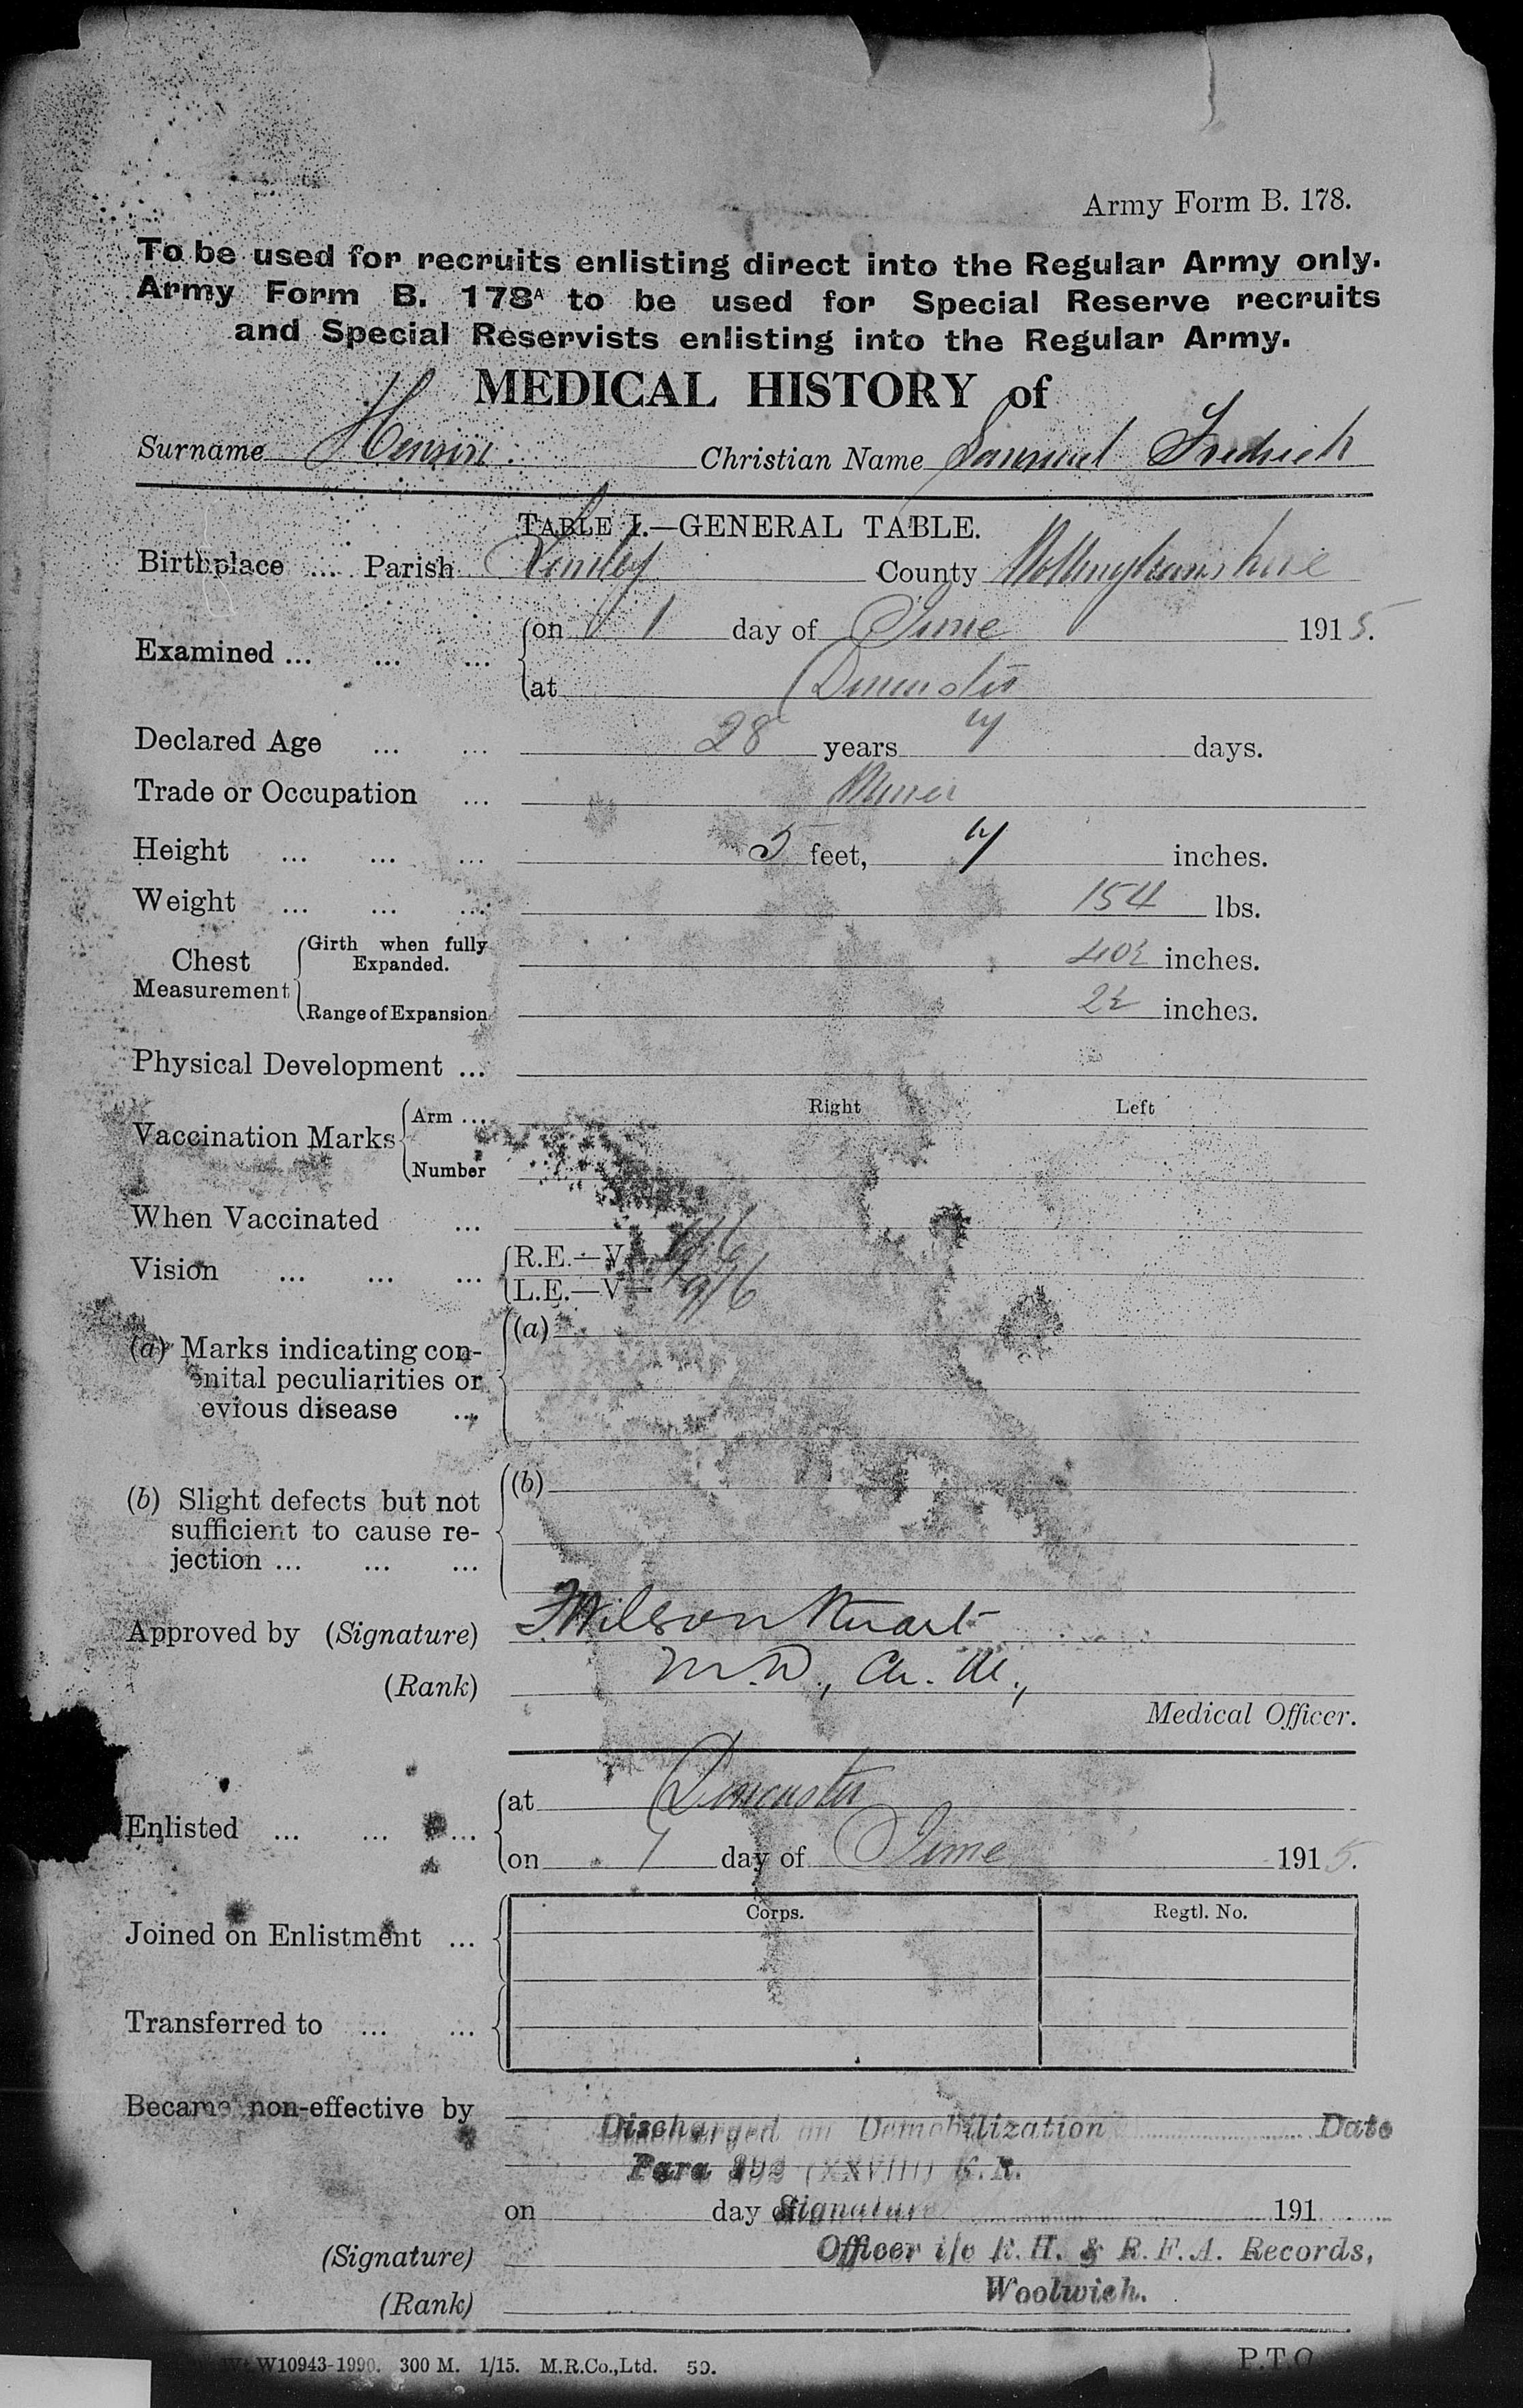 Army Form B. 178.
To be used for recruits enlisting direct into the Regular Army only.
Army Form B. 178A to be used for Special Reserve recruits
and Special Reservists enlisting into the Regular Army.
MEDICAL HISTORY of
Surname Henson. Christian Name Samuel Fredrick
TABLE I.—GENERAL TABLE.
Birthplace ... Parish County Nottinghamshire
Examined ... ... ... on 1 day of June 1915.
at Doncaster
Declared Age ... ... 28 years days.
Trade or Occupation ... Miner
Height ... ... ... 5 feet, inches.
Weight ... ... ... 154 lbs.
Chest Measurement Girth when fully Expanded. 40½ inches.
Range of Expansion 2½ inches.
Physical Development ...
Right Left
Vaccination Marks Arm ...
Number
When Vaccinated ...
Vision ... ... ... R.E.—V= /6
L.E.—V= /6
(a) Marks indicating con- (a)
enital peculiarities or
evious disease ...
(b) Slight defects but not (b)
sufficient to cause re-
jection ... ... ...
Approved by (Signature) F Wilson Stuart
(Rank) M.D., Ch. M.,
Medical Officer.
Enlisted ... ... ... at Doncaster
on 1 day of June 1915.
Corps. Regtl. No.
Joined on Enlistment ...
Transferred to ... ...
Became non-effective by
Discharged on Demobilization Date
Para 392 (XXVIII) K.R.
on day of Signature 191
Officer i/c R.H. & R.F.A. Records,
(Signature)
Woolwich.
(Rank)
Wt W10943-1990. 300 M. 1/15. M.R.Co.,Ltd. 50.
P.T.O